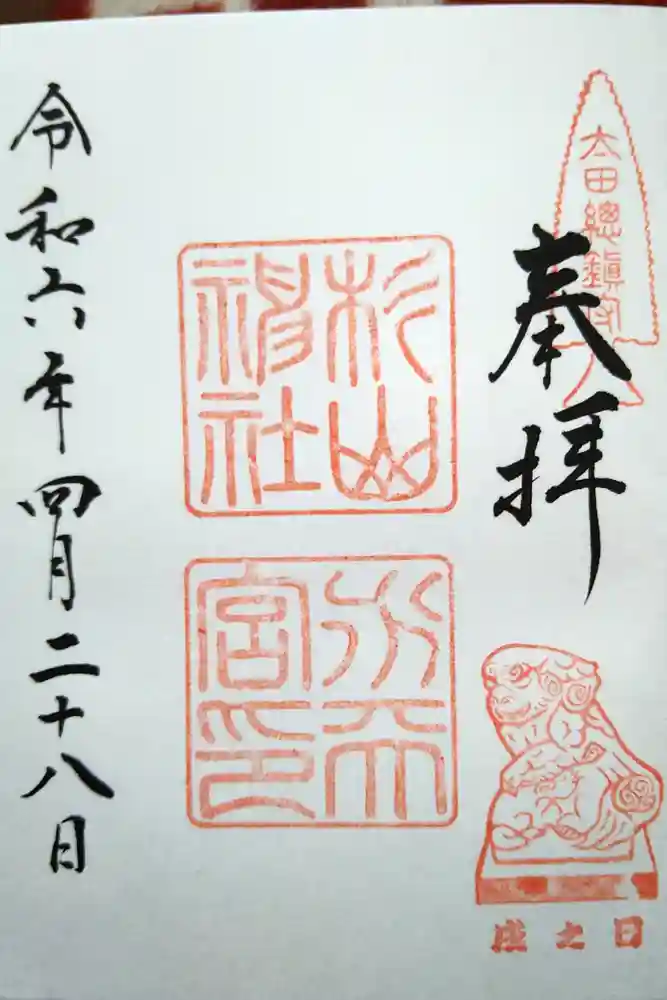 太田總鎮守
奉拝
日之
杉山
神社
水天
宮印
令和六年四月二十八日